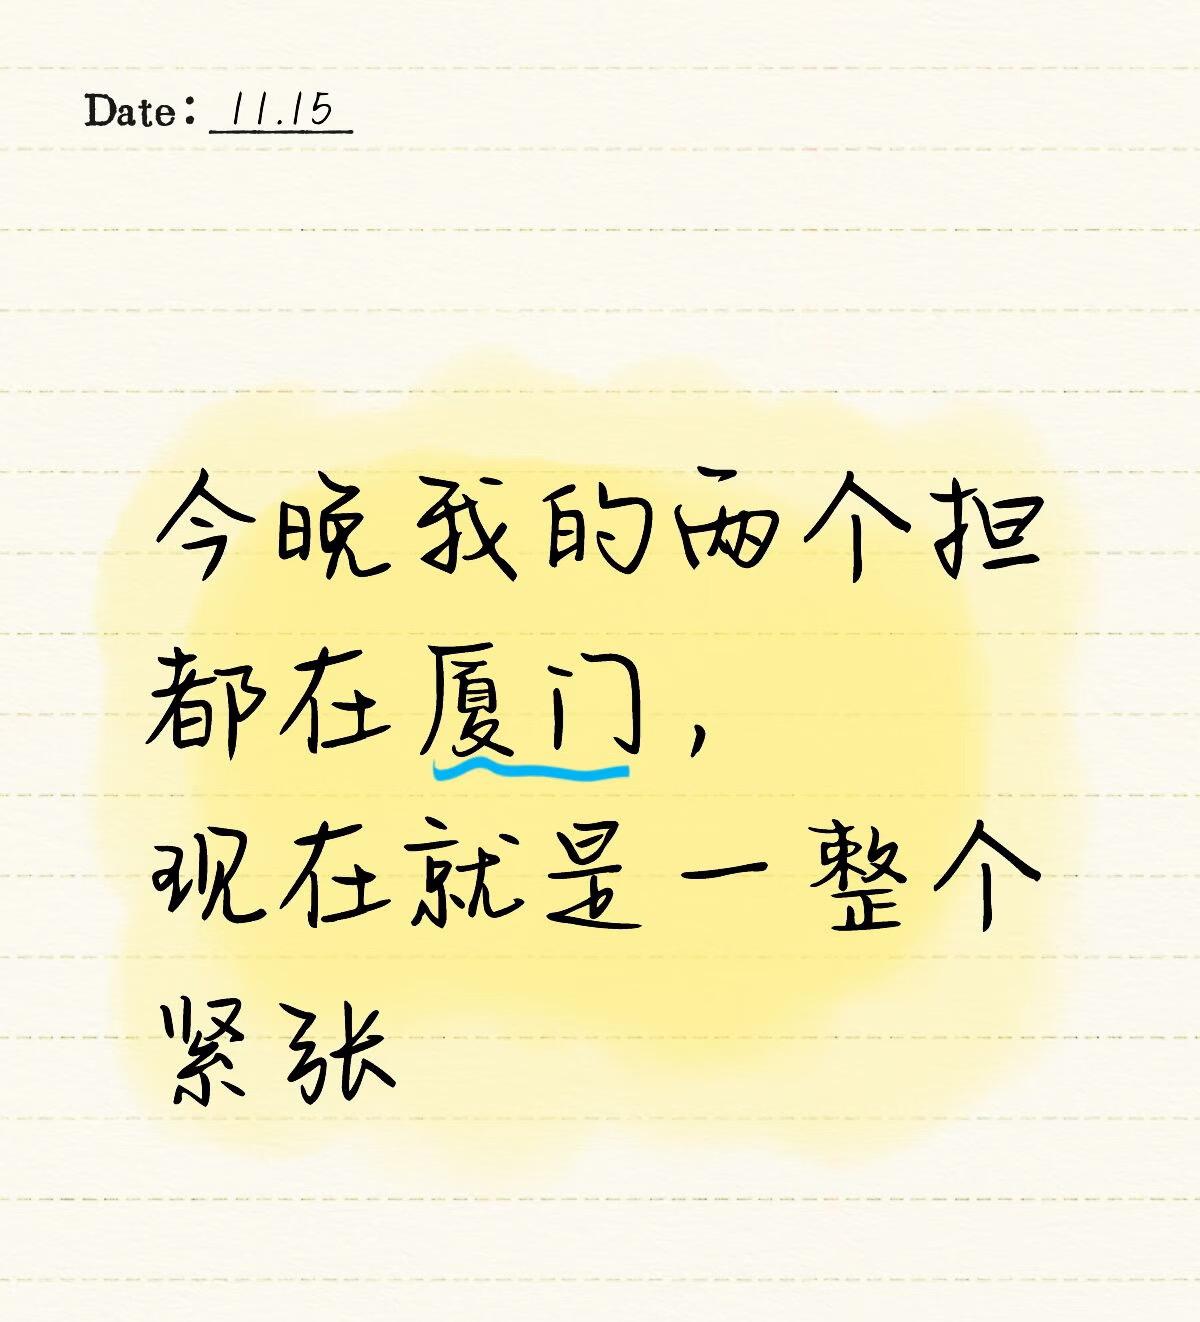 Date: 11.15
今晚我的两个担
都在厦门,
现在就是一整个
紧张